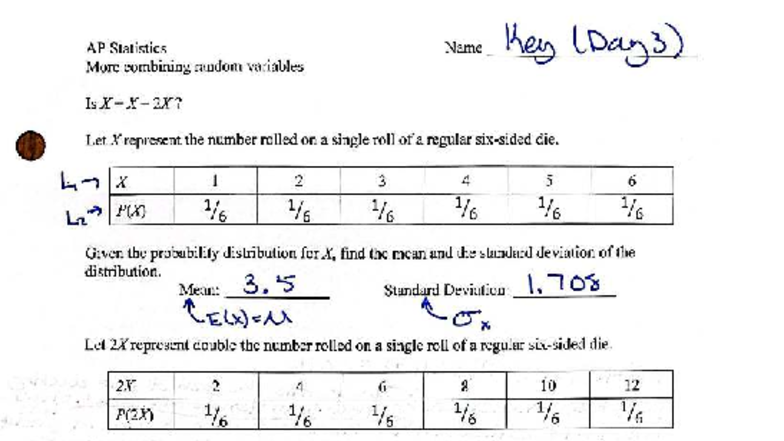 AP Statistics
Name Key (Day 3)
More combining random variables
Is X + X = 2X?
Let X represent the number rolled on a single roll of a regular six-sided die.
L₁ → X 1 2 3 4 5 6
L₂ → P(X) 1/6 1/6 1/6 1/6 1/6 1/6
Given the probability distribution for X, find the mean and the standard deviation of the
distribution.
Mean: 3.5 Standard Deviation: 1.708
E(X) = μ σₓ
Let 2X represent double the number rolled on a single roll of a regular six-sided die.
2X 2 4 6 8 10 12
P(2X) 1/6 1/6 1/6 1/6 1/6 1/6